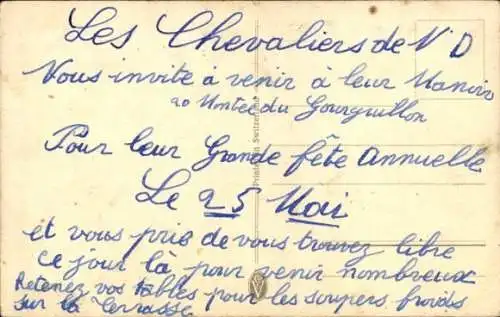 Les Chevaliers de V D
Vous invite à venir à leur Manoir
20 Montée du Gourguillon
Pour leur Grande fête Annuelle
Le 25 Mai
et vous pris de vous trouvez libre
ce jour là pour venir nombreux
Retenez vos tables pour les soupers froids
sur la terrasse
Printed in Switzerland